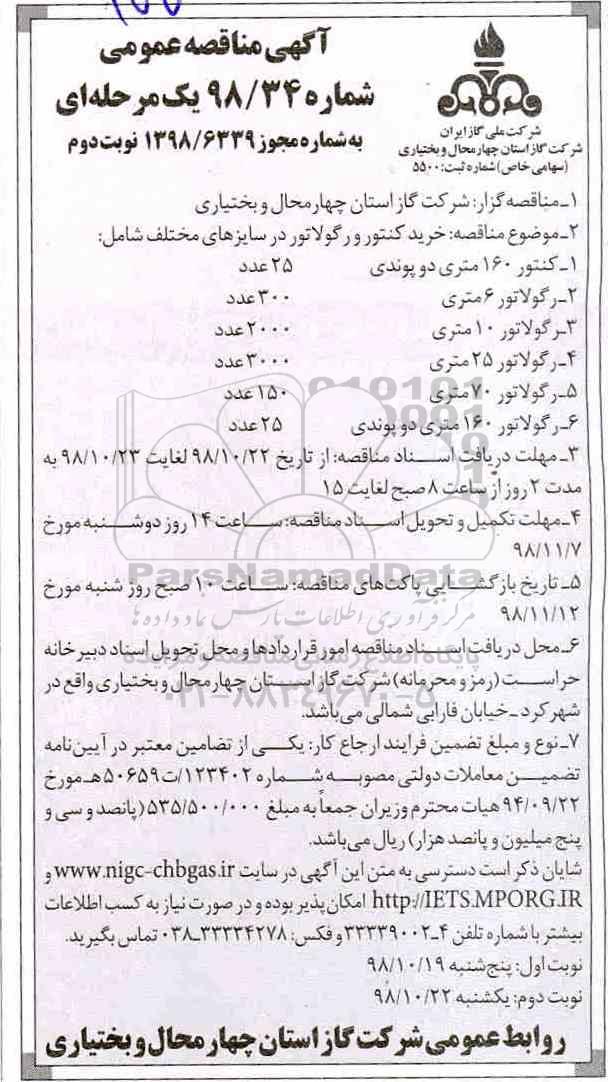 آگهی مناقصه عمومی
شماره ۹۸/۳۴ یک مرحله‌ای
به شماره مجوز ۱۳۹۸/۶۳۳۹ نوبت دوم
شرکت ملی گاز ایران
شرکت گاز استان چهارمحال و بختیاری
(سهامی خاص) شماره ثبت: ۵۵۰۰
۱ـ مناقصه گزار: شرکت گاز استان چهارمحال و بختیاری
۲ـ موضوع مناقصه: خرید کنتور و رگولاتور در سایزهای مختلف شامل:
۱ـ کنتور ۱۶۰ متری دو پوندی ۲۵ عدد
۲ـ رگولاتور ۶ متری ۳۰۰ عدد
۳ـ رگولاتور ۱۰ متری ۲۰۰۰ عدد
۴ـ رگولاتور ۲۵ متری ۳۰۰۰ عدد
۵ـ رگولاتور ۷۰ متری ۱۵۰ عدد
۶ـ رگولاتور ۱۶۰ متری دو پوندی ۲۵ عدد
۳ـ مهلت دریافت اسناد مناقصه: از تاریخ ۹۸/۱۰/۲۲ لغایت ۹۸/۱۰/۲۳ به
مدت ۲ روز از ساعت ۸ صبح لغایت ۱۵
۴ـ مهلت تکمیل و تحویل اسناد مناقصه: ساعت ۱۴ روز دوشنبه مورخ
۹۸/۱۱/۷
۵ـ تاریخ بازگشایی پاکت‌های مناقصه: ساعت ۱۰ صبح روز شنبه مورخ
۹۸/۱۱/۱۲
ParsNamadData
مرکز فرآوری اطلاعات پارس نماد داده‌ها
۶ـ محل دریافت اسناد مناقصه امور قراردادها و محل تحویل اسناد دبیرخانه
پایگاه اطلاع رسانی مناقصه و مزایده
حراست (رمز و محرمانه) شرکت گاز استان چهارمحال و بختیاری واقع در
۰۲۱-۸۸۳۴۹۶۷۰-۵
شهرکرد ـ خیابان فارابی شمالی می‌باشد.
۷ـ نوع و مبلغ تضمین فرایند ارجاع کار: یکی از تضامین معتبر در آیین‌نامه
تضمین معاملات دولتی مصوبه شماره ۱۲۳۴۰۲/ت۵۰۶۵۹هـ مورخ
۹۴/۰۹/۲۲ هیات محترم وزیران جمعاً به مبلغ ۵۳۵/۵۰۰/۰۰۰ (پانصد و سی و
پنج میلیون و پانصد هزار) ریال می‌باشد.
شایان ذکر است دسترسی به متن این آگهی در سایت www.nigc-chbgas.ir و
http://IETS.MPORG.IR امکان‌پذیر بوده و در صورت نیاز به کسب اطلاعات
بیشتر با شماره تلفن ۴ـ۳۳۳۳۹۰۰۲ و فکس: ۳۳۳۳۴۲۷۸ـ۰۳۸ تماس بگیرید.
نوبت اول: پنج‌شنبه ۹۸/۱۰/۱۹
نوبت دوم: یکشنبه ۹۸/۱۰/۲۲
روابط عمومی شرکت گاز استان چهارمحال و بختیاری